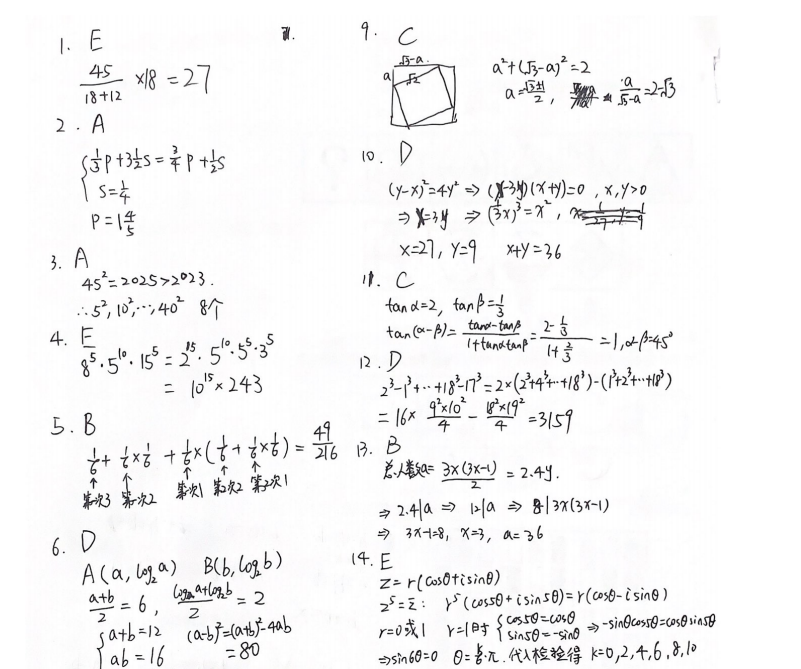 1. E
45/(18+12) ×18 = 27
2. A
{ 1/3 P + 3 1/2 S = 3/4 P + 1/2 S
S = 1/4
P = 1 4/5
3. A
45² = 2025 > 2023.
∴ 5², 10², ⋯, 40² 8个
4. E
8⁵ · 5¹⁰ · 15⁵ = 2¹⁵ · 5¹⁰ · 5⁵ · 3⁵
= 10¹⁵ × 243
5. B
1/6 + 1/6 × 1/6 + 1/6 × (1/6 + 1/6 × 1/6) = 49/216
↑ ↑ ↑ ↑ ↑
第一次3 第一次2 第一次1 第二次2 第二次1
6. D
A(a, log₂a) B(b, log₂b)
(a+b)/2 = 6, (log₂a+log₂b)/2 = 2
{ a+b = 12 (a-b)² = (a+b)² - 4ab
ab = 16 = 80
9. C
√3-a
a √2
a² + (√3-a)² = 2
a = (√3±1)/2, a/(√3-a) = 2-√3
10. D
(y-x)² = 4y² ⇒ (x-3y)(x+y) = 0, x, y > 0
⇒ x = 3y ⇒ (1/3 x)³ = x²,
x = 27, y = 9 x+y = 36
11. C
tanα = 2, tanβ = 1/3
tan(α-β) = (tanα-tanβ)/(1+tanαtanβ) = (2-1/3)/(1+2/3) = 1, α-β = 45°
12. D
2³-1³+⋯+18³-17³ = 2×(2³+4³+⋯+18³)-(1³+2³+⋯+18³)
= 16× (9²×10²)/4 - (18²×19²)/4 = 3159
13. B
总人数a = 3x(3x-1)/2 = 2.4y.
⇒ 2.4|a ⇒ 12|a ⇒ 8|3x(3x-1)
⇒ 3x-1=8, x=3, a=36
14. E
z = r(cosθ+isinθ)
z⁵ = z̄: r⁵(cos5θ+isin5θ) = r(cosθ-isinθ)
r=0或1 r=1时 { cos5θ=cosθ sin5θ=-sinθ ⇒ -sinθcos5θ=cosθsin5θ
⇒ sin6θ=0 θ=k/6 π. 代入检验得 k=0,2,4,6,8,10